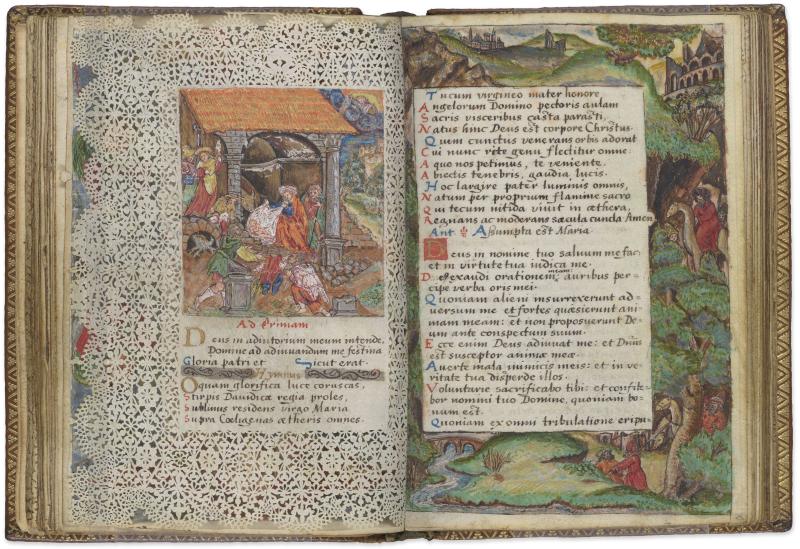 Ad Primam
Deus in adiutorium meum intende,
Domine ad adiuuandum me festina
Gloria patri et Sicut erat
Hymnus
O quam glorifica luce coruscas,
Stirpis Dauidicæ regia proles,
Sublimis residens virgo Maria
Supra Cœligenas ætheris omnes.
Tu cum virgineo mater honore,
Angelorum Domino pectoris aulam
Sacris visceribus casta parasti,
Natus hinc Deus est corpore Christus.
Quem cunctus venerans orbis adorat
Cui nunc rite genu flectitur omne
A quo nos petimus, te veniente
Abiectis tenebris, gaudia lucis.
Hoc largire pater luminis omnis,
Natum per proprium flamine sacro
Qui tecum nitida viuit in æthera,
Regnans ac moderans sæcula cuncta Amen
Ant Assumpta est Maria
Deus in nomine tuo saluum me fac:
et in virtute tua iudica me.
Deus exaudi orationem meam: auribus per-
cipe verba oris mei.
Quoniam alieni insurrexerunt ad-
uersum me et fortes quæsierunt ani-
mam meam: et non proposuerunt De-
um ante conspectum suum.
Ecce enim Deus adiuuat me: et Dnus
est susceptor animæ meæ.
Auerte mala inimicis meis: et in ve-
ritate tua disperde illos.
Voluntarie sacrificabo tibi: et confite-
bor nomini tuo Domine, quoniam bo-
num est.
Quoniam ex omni tribulatione eripu-